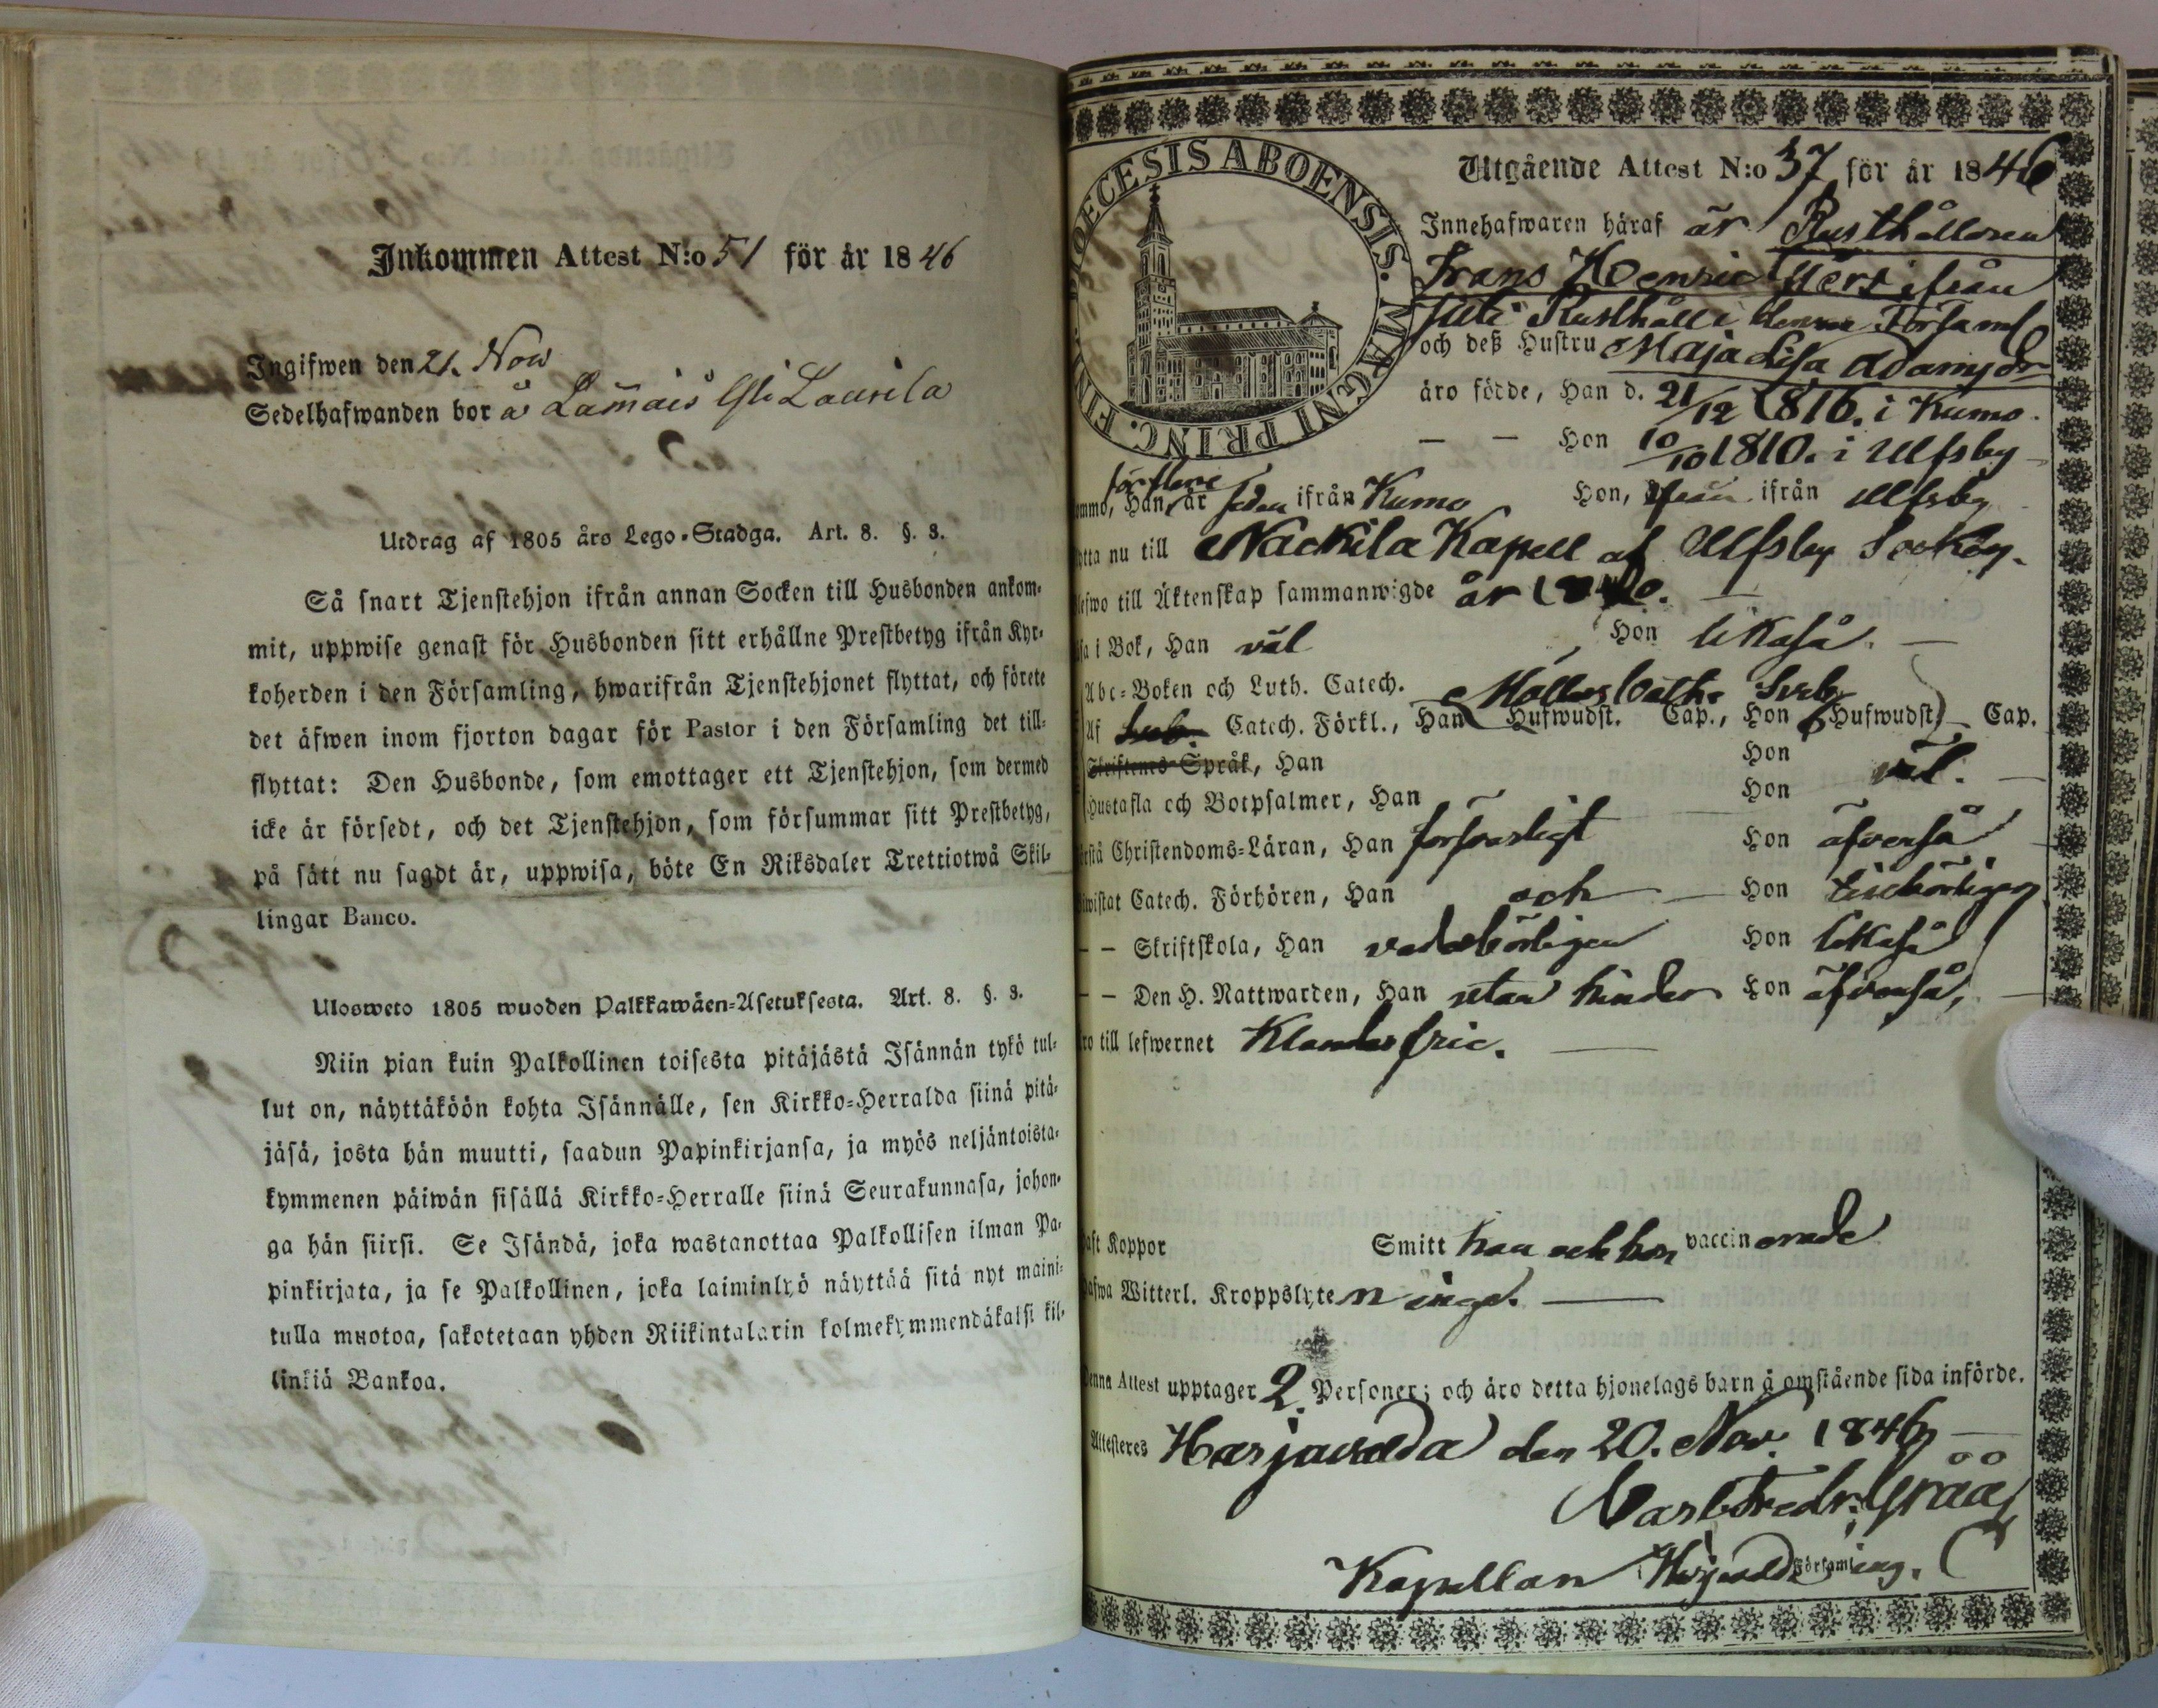 Inkommen Attest N:o 51 för år 1846
Ingifwen den 21. Nov
Sedelhafwanden bor å Lammais Laurila
Utdrag af 1805 års Lego-Stadga. Art. 8. §. 3.
Så snart Tjenstehjon ifrån annan Socken till Husbonden ankom-
mit, uppwise genast för Husbonden sitt erhållne Prestbetyg ifrån Kyr-
koherden i den Församling, hwarifrån Tjenstehjonet flyttat, och förete
det äfwen inom fjorton dagar för Pastor i den Församling det till-
flyttat: Den Husbonde, som emottager ett Tjenstehjon, som dermed
icke är försedt, och det Tjenstehjon, som försummar sitt Prestbetyg,
på sätt nu sagdt är, uppwisa, böte En Riksdaler Trettiotwå Skil-
lingar Banco.
Ulosweto 1805 wuoden Palkkawäen-Asetuksesta. Art. 8. §. 3.
Niin pian kuin Palkollinen toisesta pitäjästä Isännän tykö tul-
lut on, näyttäköön kohta Isännälle, sen Kirkko-Herralda siinä pitä-
jäsä, josta hän muutti, saadun Papinkirjansa, ja myös neljäntoista-
kymmenen päiwän sisällä Kirkko-Herralle siinä Seurakunnasa, johon-
ga hän siirsi. Se Isändä, joka wastanottaa Palkollisen ilman Pa-
pinkirjata, ja se Palkollinen, joka laiminlyö näyttää sitä nyt maini-
tulla muotoa, sakotetaan yhden Riikintalarin kolmekymmendäkaksi kil-
linkiä Bankoa.
DIOECESIS ABOENSIS. MAGNI PRINC. FINL.
Utgående Attest N:o 37 för år 1846
Innehafwaren häraf är Rusthållaren
Frans Henric ifrån
Rusthåll i denna Församl
och deß Hustru Maja Lisa Adamsdr
äro födde, Han d. 21/12 1816. i Kumo.
— — Hon 10/10 1810. i Ulfsby
ommo, Han, är ifrån Kumo Hon, ifrån Ulfsby
ytta nu till Nackila Kapell af Ulfsby Socken.
lefwo till Äktenskap sammanwigde år 1840.
sa i Bok, Han väl Hon likaså.
Abc-Boken och Luth. Catech.
Af Catech. Förkl., Han Hufwudst. Cap., Hon Hufwudst. Cap.
Skriftenes Språk, Han Hon
Hustafla och Botpsalmer, Han Hon väl.
örstå Christendoms-Läran, Han försvarligt Hon äfvenså
iwistat Catech. Förhören, Han och Hon
— — Skriftskola, Han vederbörligen Hon likaså
— — Den H. Nattwarden, Han utan hinder Hon äfvenså,
ro till lefwernet Klanderfrie.
aft Koppor Smitt han och hon vaccinerade
afwa Witterl. Kroppslyten inga.
Denna Attest upptager 2. Personer; och äro detta hjonelags barn å omstående sida införde.
Attesteres Harjavalda den 20. Nov. 1846
Carl Fredr. Grååf
Kapellan i Harjavalda Församling.